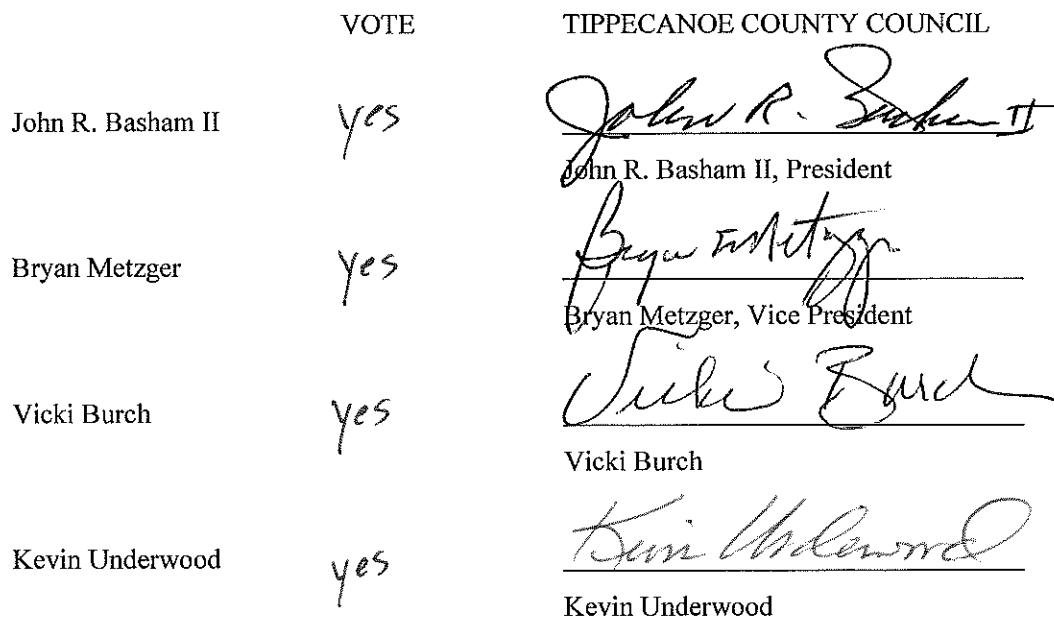 VOTE TIPPECANOE COUNTY COUNCIL
John R. Basham II yes John R. Basham II
John R. Basham II, President
Bryan Metzger yes Bryan E Metzger
Bryan Metzger, Vice President
Vicki Burch yes Vicki Burch
Vicki Burch
Kevin Underwood yes Kevin Underwood
Kevin Underwood